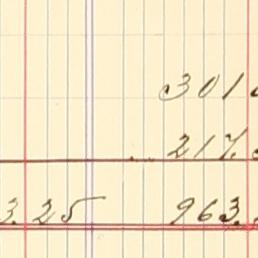 301
217.
3.25 963.